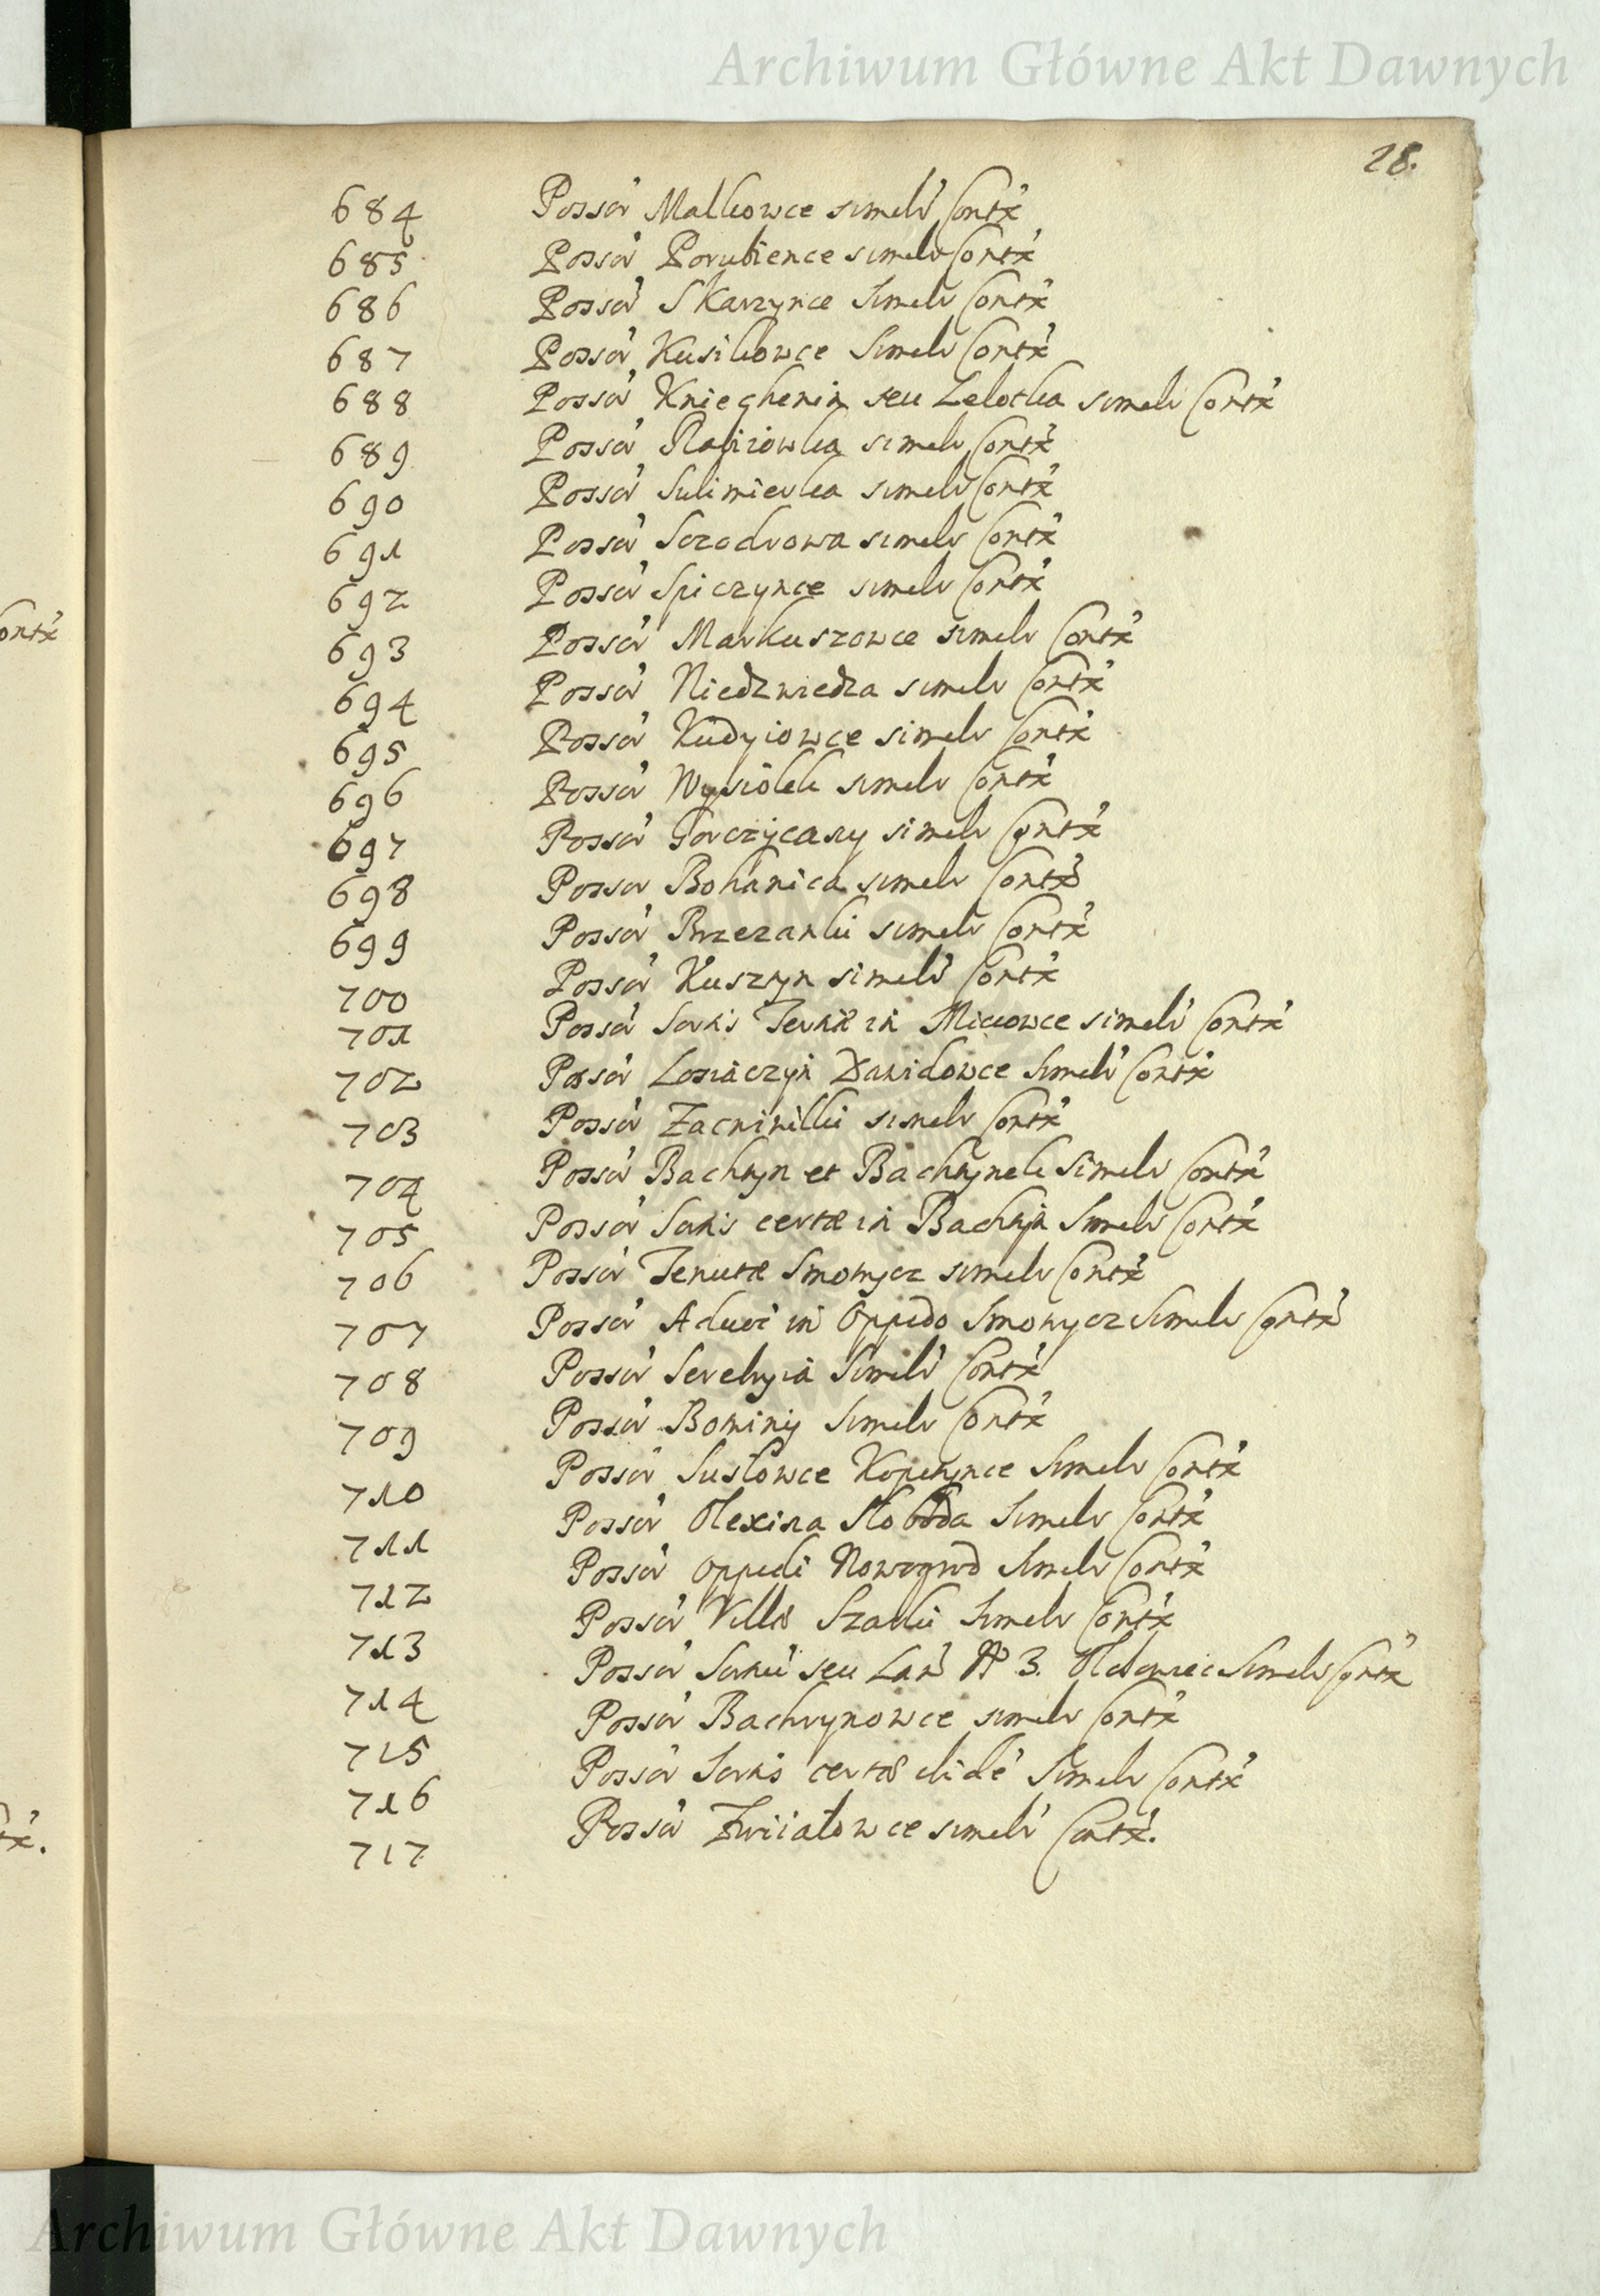 Archiwum Główne Akt Dawnych
28.
684 Possór Malkowce simelr Contx
685 Possór Porubience simelr Contx
686 Possór Skarzynce Simelr Contx
687 Possór Kusikowce Simelr Contx
688 Possór Knieghenin seu Lelotka simelr Contx
689 Possór simelr Contx
690 Possór Sulimierka simelr Contx
691 Possór Szczodrowa simelr Contx
692 Possór Spiczynce simelr Contx
693 Possór Markuszowce simelr Contx
694 Possór Niedzwiedza simelr Contx
695 Possór Kudyiowce simelr Contx
696 Possór Wysiolek simelr Contx
697 Possór Gorczyczany simelr Contx
698 Possor Bohanica simelr Contx
699 Possór Brzezanki simelr Contx
700 Possór Kuszryn simelr Contx
701 Possór Sortis in Mickowce simelr Contx
702 Possór Losiaczyn Dawidowce Simelr Contx
703 Possór Zacninilki simelr Contx
704 Possór Bachryn et Bachrynek Simelr Contx
705 Possór Sortis certæ in Bachryn Simelr Contx
706 Possór Tenutæ Smotrycz simelr Contx
707 Possór in Oppido Smotrycz Simelr Contx
708 Possór Simelr Contx
709 Possór Simelr Contx
710 Possór Suslowce Kopetynce Simelr Contx
711 Possór Olexina Słoboda Simelr Contx
712 Possór Oppidi Nowogrod Simelr Contx
713 Possór Villæ Szarki Simelr Contx
714 Possór seu 3. Simelr Contx
715 Possór Bachrynowce simelr Contx
716 Possór Sortis certæ ibidé Simelr Contx
717 Possór Zwiiatowce simelr Contx.
ontx
tx.
Archiwum Główne Akt Dawnych